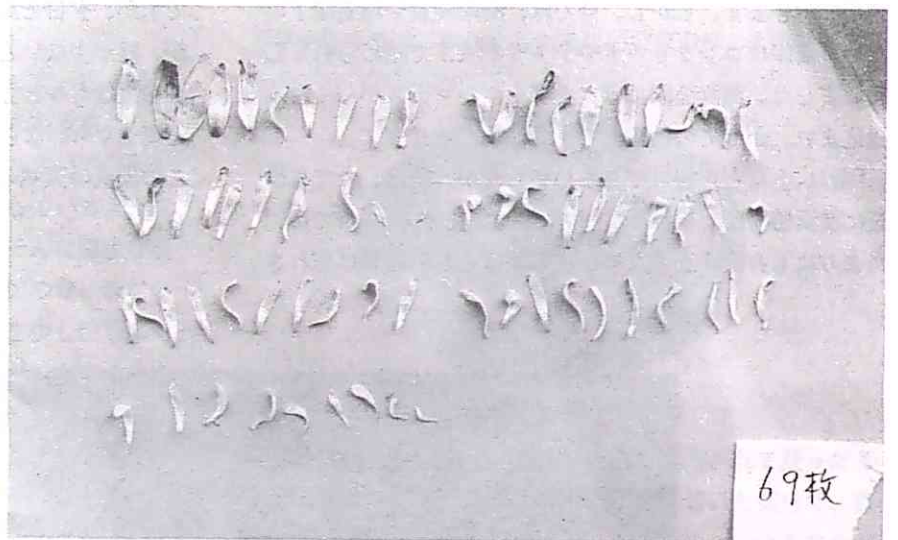 69枚